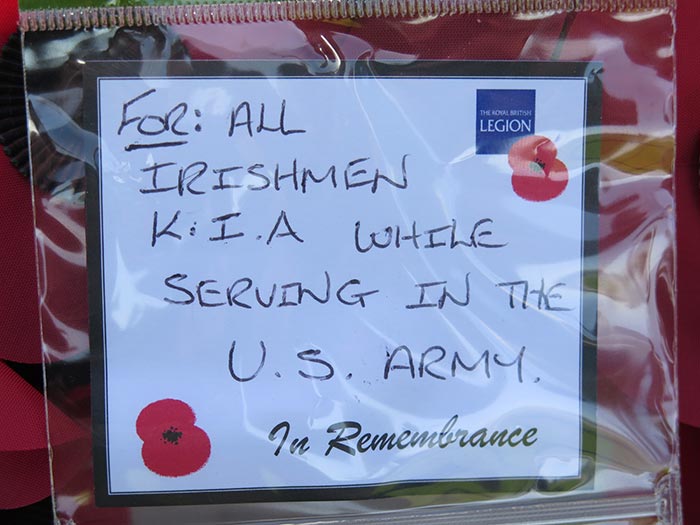 THE ROYAL BRITISH
LEGION
FOR: ALL
IRISHMEN
K.I.A WHILE
SERVING IN THE
U.S. ARMY.
In Remembrance